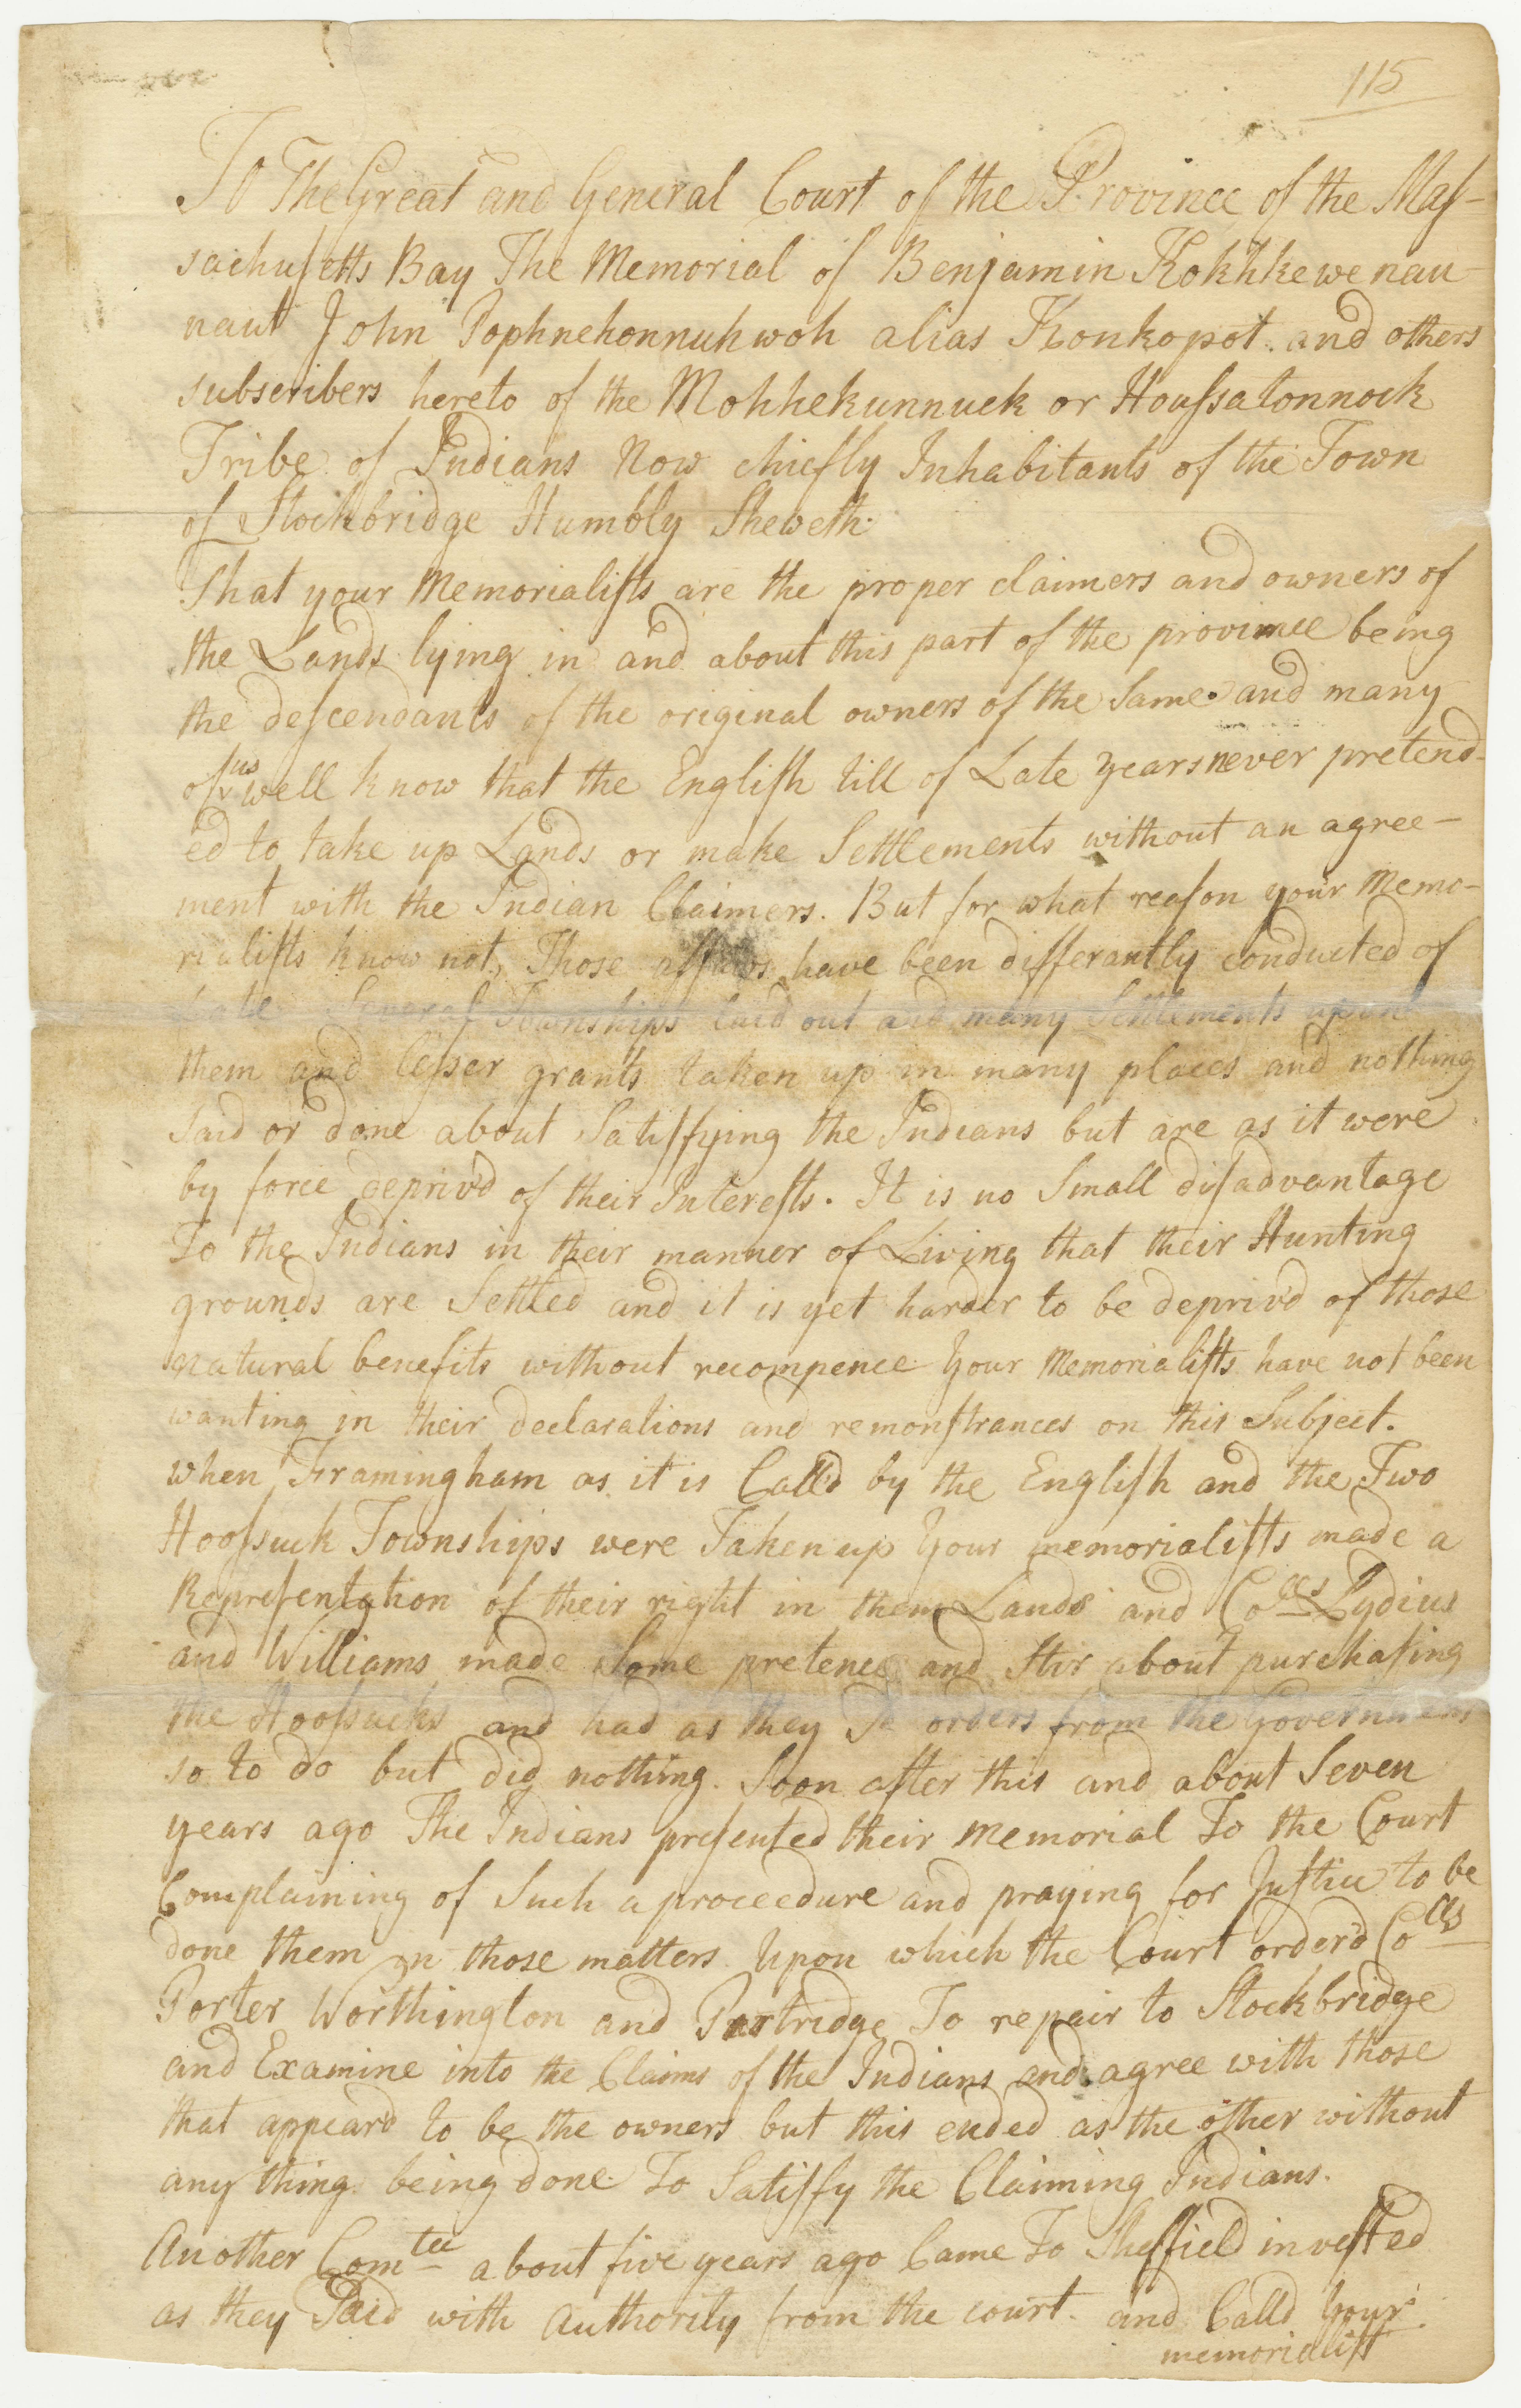 115
To The Great and General Court of the Province of the Maſ-
sachuſetts Bay The Memorial of Benjamin Kokhkewenau
naut John Pophnehonnuhwoh alias Konkopot. and others
subscribers hereto of the Mohhekunnuck or Houſsatonnock
Tribe of Indians Now chiefly Inhabitants of the Town
of Stockbridge Humbly Sheweth.
That your Memorialiſts are the proper claimers and owners of
the Lands lying in and about this part of the province being
the deſcendants of the original owners of the Same. and many
of us well know that the Engliſh till of Late years never pretend-
ed to take up Lands or make Settlements without an agree-
ment with the Indian Claimers. But for what reaſon your Memo-
rialiſts know not, Those affairs have been differantly conducted of
Late Several Townships laid out and many Settlements upon
them and leſser grants taken up in many places and nothing
Said or done about Satiſfying the Indians but are as it were
by force depriv'd of their Intereſts. It is no Small diſadvantage
To the Indians in their manner of Living that their Hunting
grounds are Settled and it is yet harder to be depriv'd of those
natural benefits without recompence Your Memorialiſts have not been
wanting in their declarations and remonſtrances on this Subject.
when Framingham as it is Call'd by the Engliſh and the Two
Hooſsuck Townships were Taken up Your memorialiſts made a
Repreſentation of their right in them Lands and Colls Lydius
and Williams made Some pretence and Stir about purchaſing
the Hooſsucks and had as they Sd orders from the Government
so to do but did nothing. Soon after this and about Seven
years ago The Indians preſented their Memorial To the Court
Complaining of Such a proceedure and praying for Juſtice to be
done them in those matters Upon which the Court order'd Colls
Porter Worthington and Partridge To repair to Stockbridge
and Examine into the Claims of the Indians and agree with those
that appear'd to be the owners but this ended as the other without
any thing being done To Satiſfy the Claiming Indians.
Another Comtee about five years ago Came To Sheffield inveſted
as they Said with Authority from the court. and Calld Your
memorialiſt